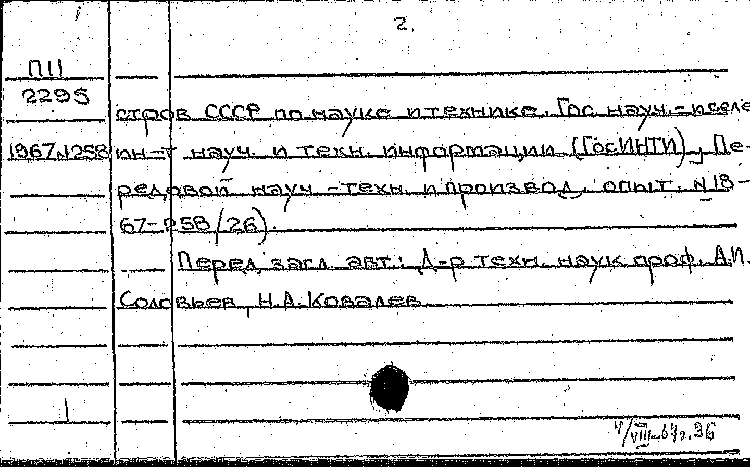 2.
П11
2295
стров СССР по науке и технике. Гос. науч.-исслед.
1967.1258 ин-т науч. и техн. информации (ГосИНТИ). Пе-
редовой науч.-техн. и производ. опыт. №18-
67-258/26).
Перед загл. авт.: Д-р техн. наук проф. А.И.
Соловьев, Н.А. Ковалев